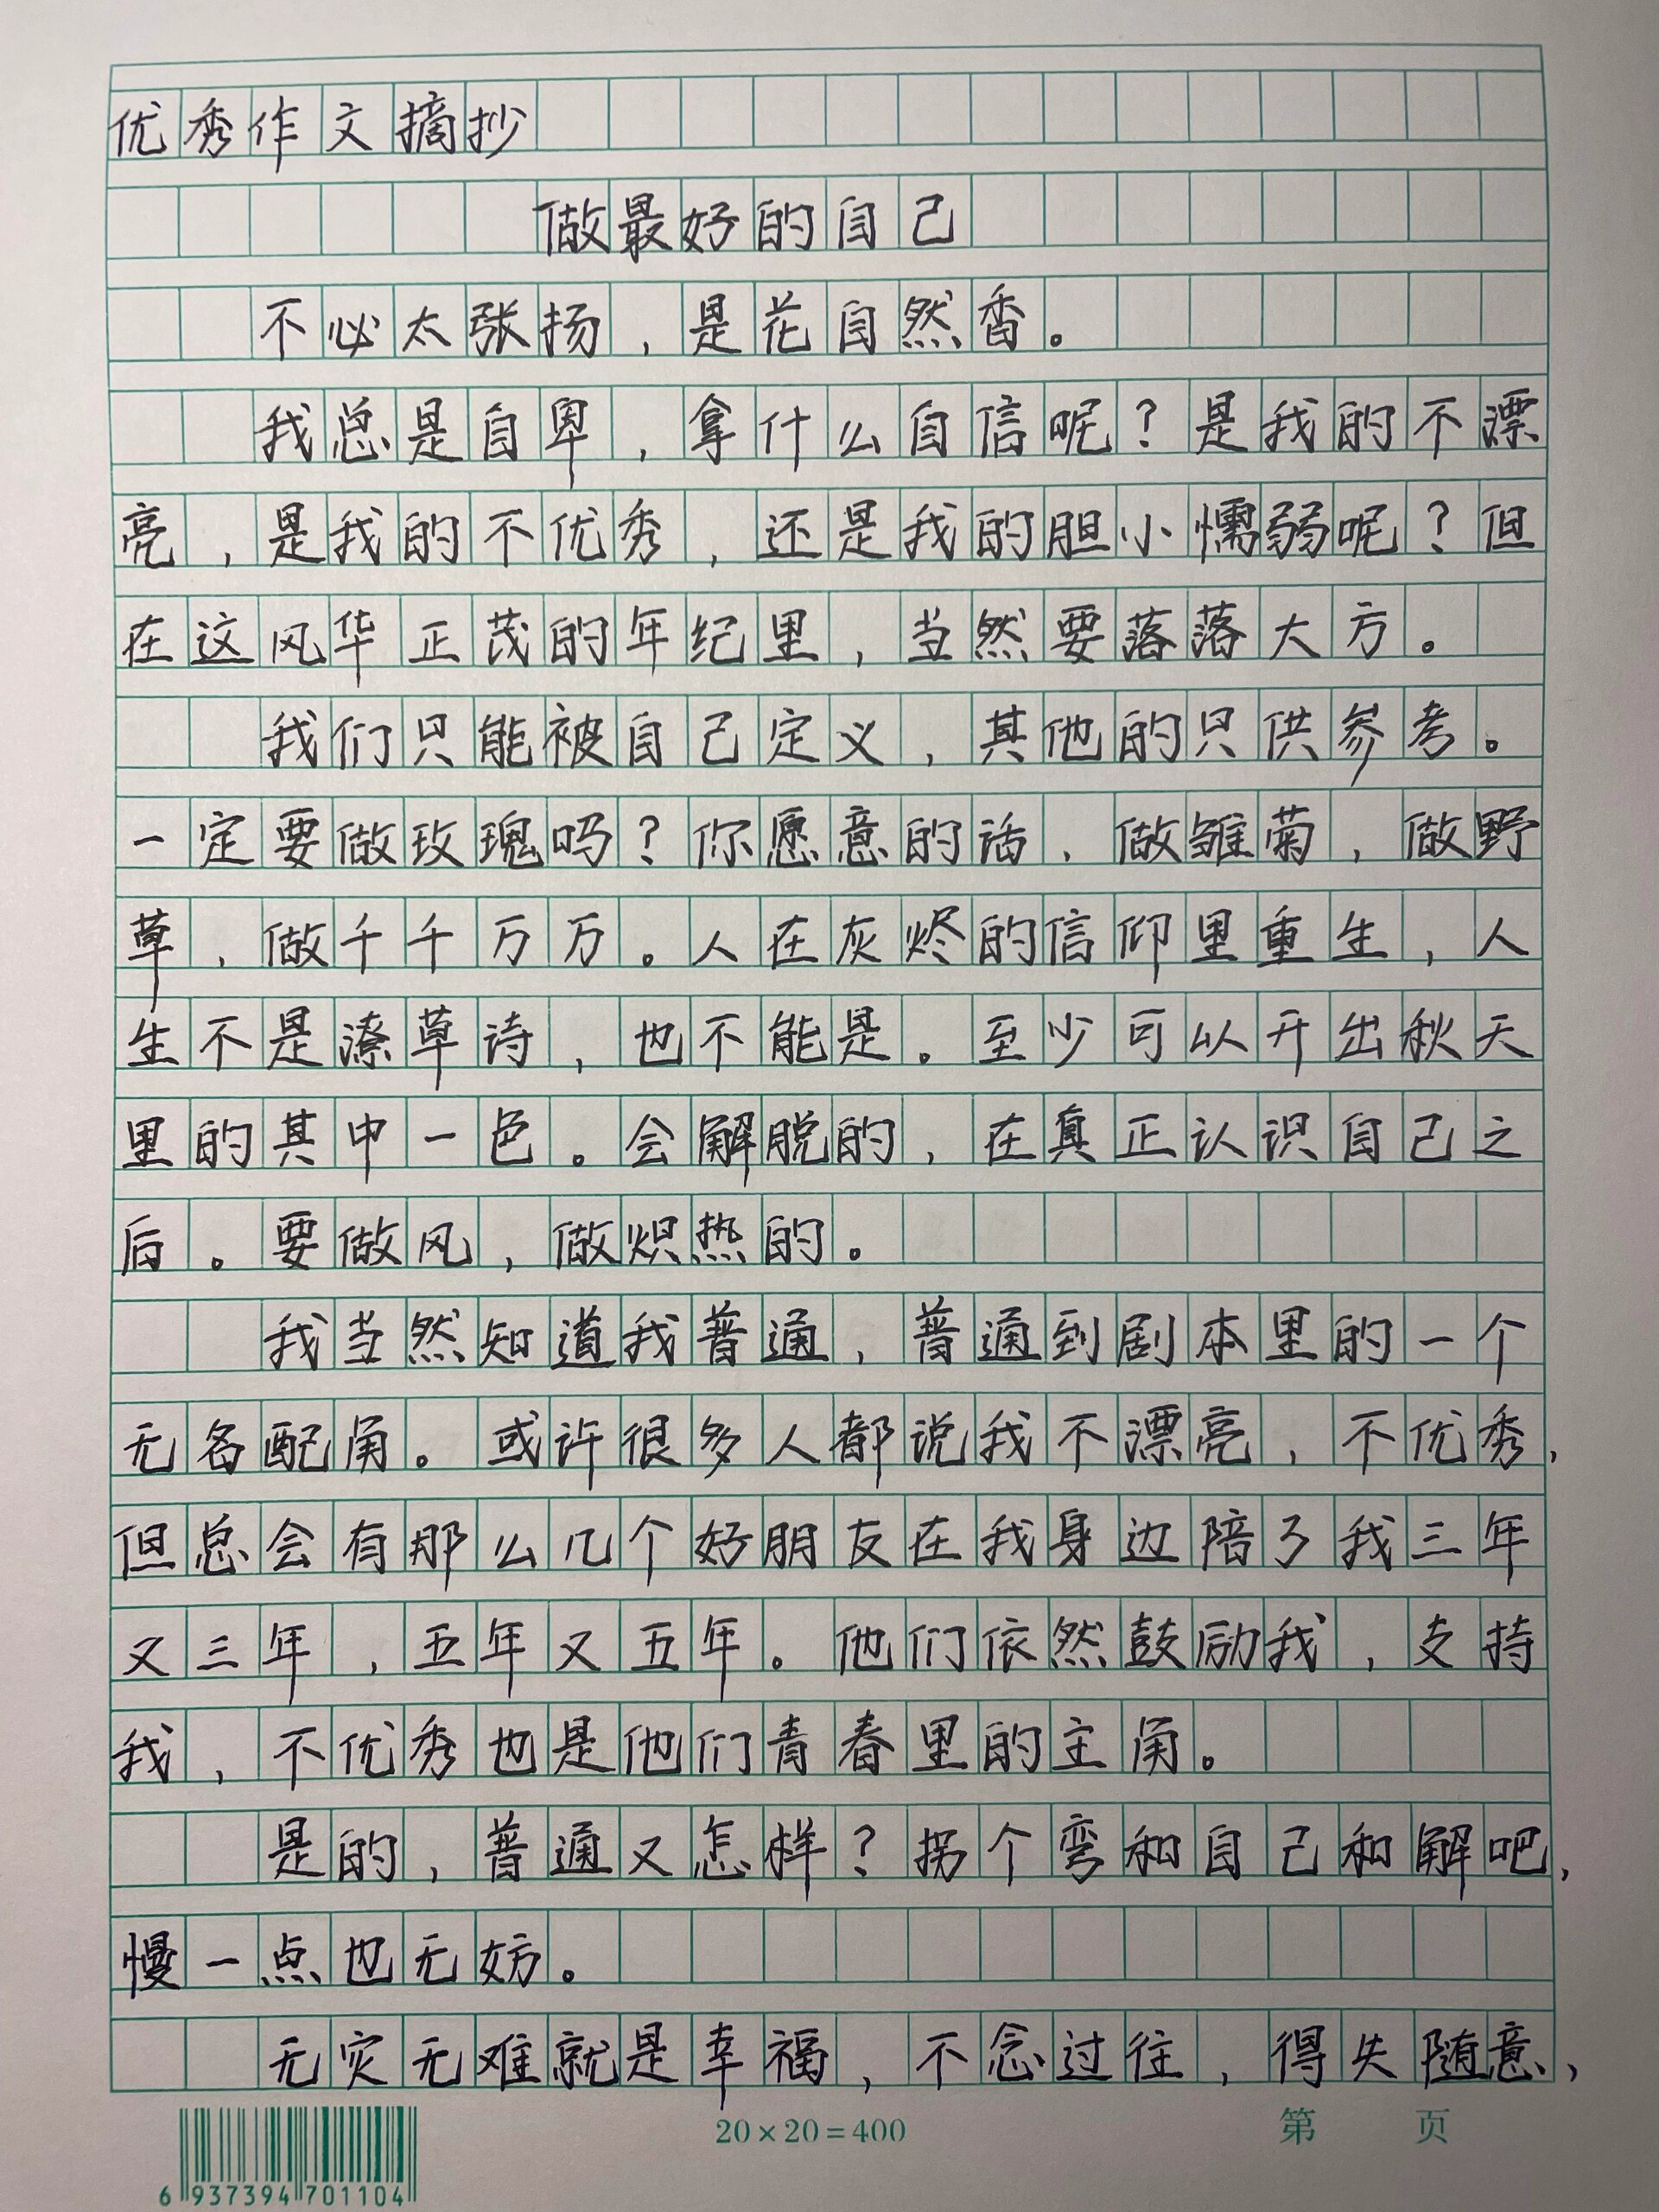 优秀作文摘抄
做最好的自己
不必太张扬，是花自然香。
我总是自卑，拿什么自信呢？是我的不漂
亮，是我的不优秀，还是我的胆小懦弱呢？但
在这风华正茂的年纪里，当然要落落大方。
我们只能被自己定义，其他的只供参考。
一定要做玫瑰吗？你愿意的话，做雏菊，做野
草，做千千万万。人在灰烬的信仰里重生，人
生不是潦草诗，也不能是。至少可以开出秋天
里的其中一色。会解脱的，在真正认识自己之
后。要做风，做炽热的。
我当然知道我普通，普通到剧本里的一个
无名配角。或许很多人都说我不漂亮，不优秀，
但总会有那么几个好朋友在我身边陪了我三年
又三年，五年又五年。他们依然鼓励我，支持
我，不优秀也是他们青春里的主角。
是的，普通又怎样？拐个弯和自己和解吧，
慢一点也无妨。
无灾无难就是幸福，不念过往，得失随意，
20×20=400
第 页
6 937394 701104